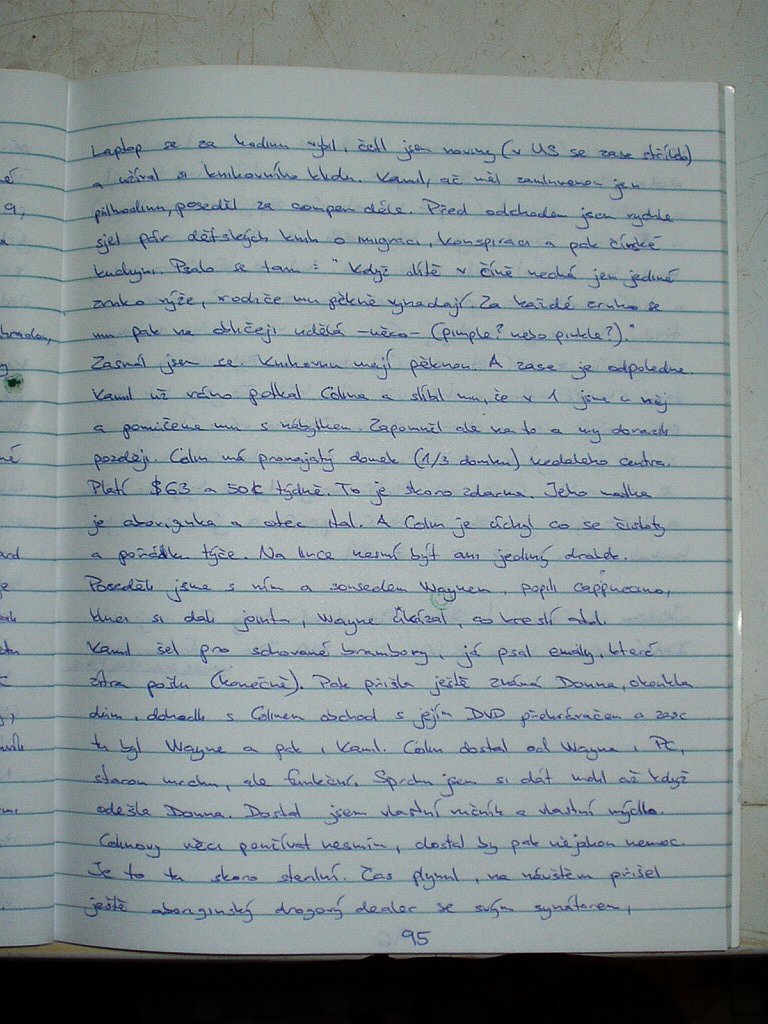 Laptop se za hodinu vybil, četl jsem noviny (v US se zase střílelo)
a užíval si knihovního klidu. Kamil, ač měl zamluvenou jen
půlhodinu, poseděl za compem déle. Před odchodem jsem rychle
sjel pár dětských knih o migraci, konspiraci a pak čínské
kuchyni. Psalo se tam: "Když dítě v číně nechá jen jediné
zrnko rýže, rodiče mu pěkně vynadají. Za každé zrnko se
mu pak na obličeji udělá -něco- (pimple? nebo pinkle?)."
Zasmál jsem se. Knihovnu mají pěknou. A zase je odpoledne.
Kamil už ráno potkal Colina a slíbil mu, že v 1 jsme u něj
a pomůžeme mu s nábytkem. Zapomněl ale na to a my dorazili
později. Colin má pronajatý domek (1/3 domku) nedaleko centra.
Platí $63 a 50c týdně. To je skoro zdarma. Jeho matka
je aboriginka a otec ital. A Colin je úchyl co se čistoty
a pořádku týče. Na lince nesmí být ani jediný drobek.
Poseděli jsme s ním a sousedem Waynem, popili cappuccino,
kluci si dali jointa, Wayne ukázal, co kreslí atd.
Kamil šel pro schované brambory, já psal emaily, které
zítra pošlu (konečně). Pak přišla ještě známá Donna, okoukla
dům, dohodli s Colinem obchod s jejím DVD přehrávačem a zase
tu byl Wayne a pak i Kamil. Colin dostal od Wayna i PC,
starou mrchu, ale funkční. Sprchu jsem si dát mohl až když
odešla Donna. Dostal jsem vlastní ručník a vlastní mýdlo.
Colinovy věci používat nesmím, dostal by pak nějakou nemoc.
Je to tu skoro sterilní. Čas plynul, na návštěvu přišel
ještě aboriginský drogový dealer se svým synátorem,
95